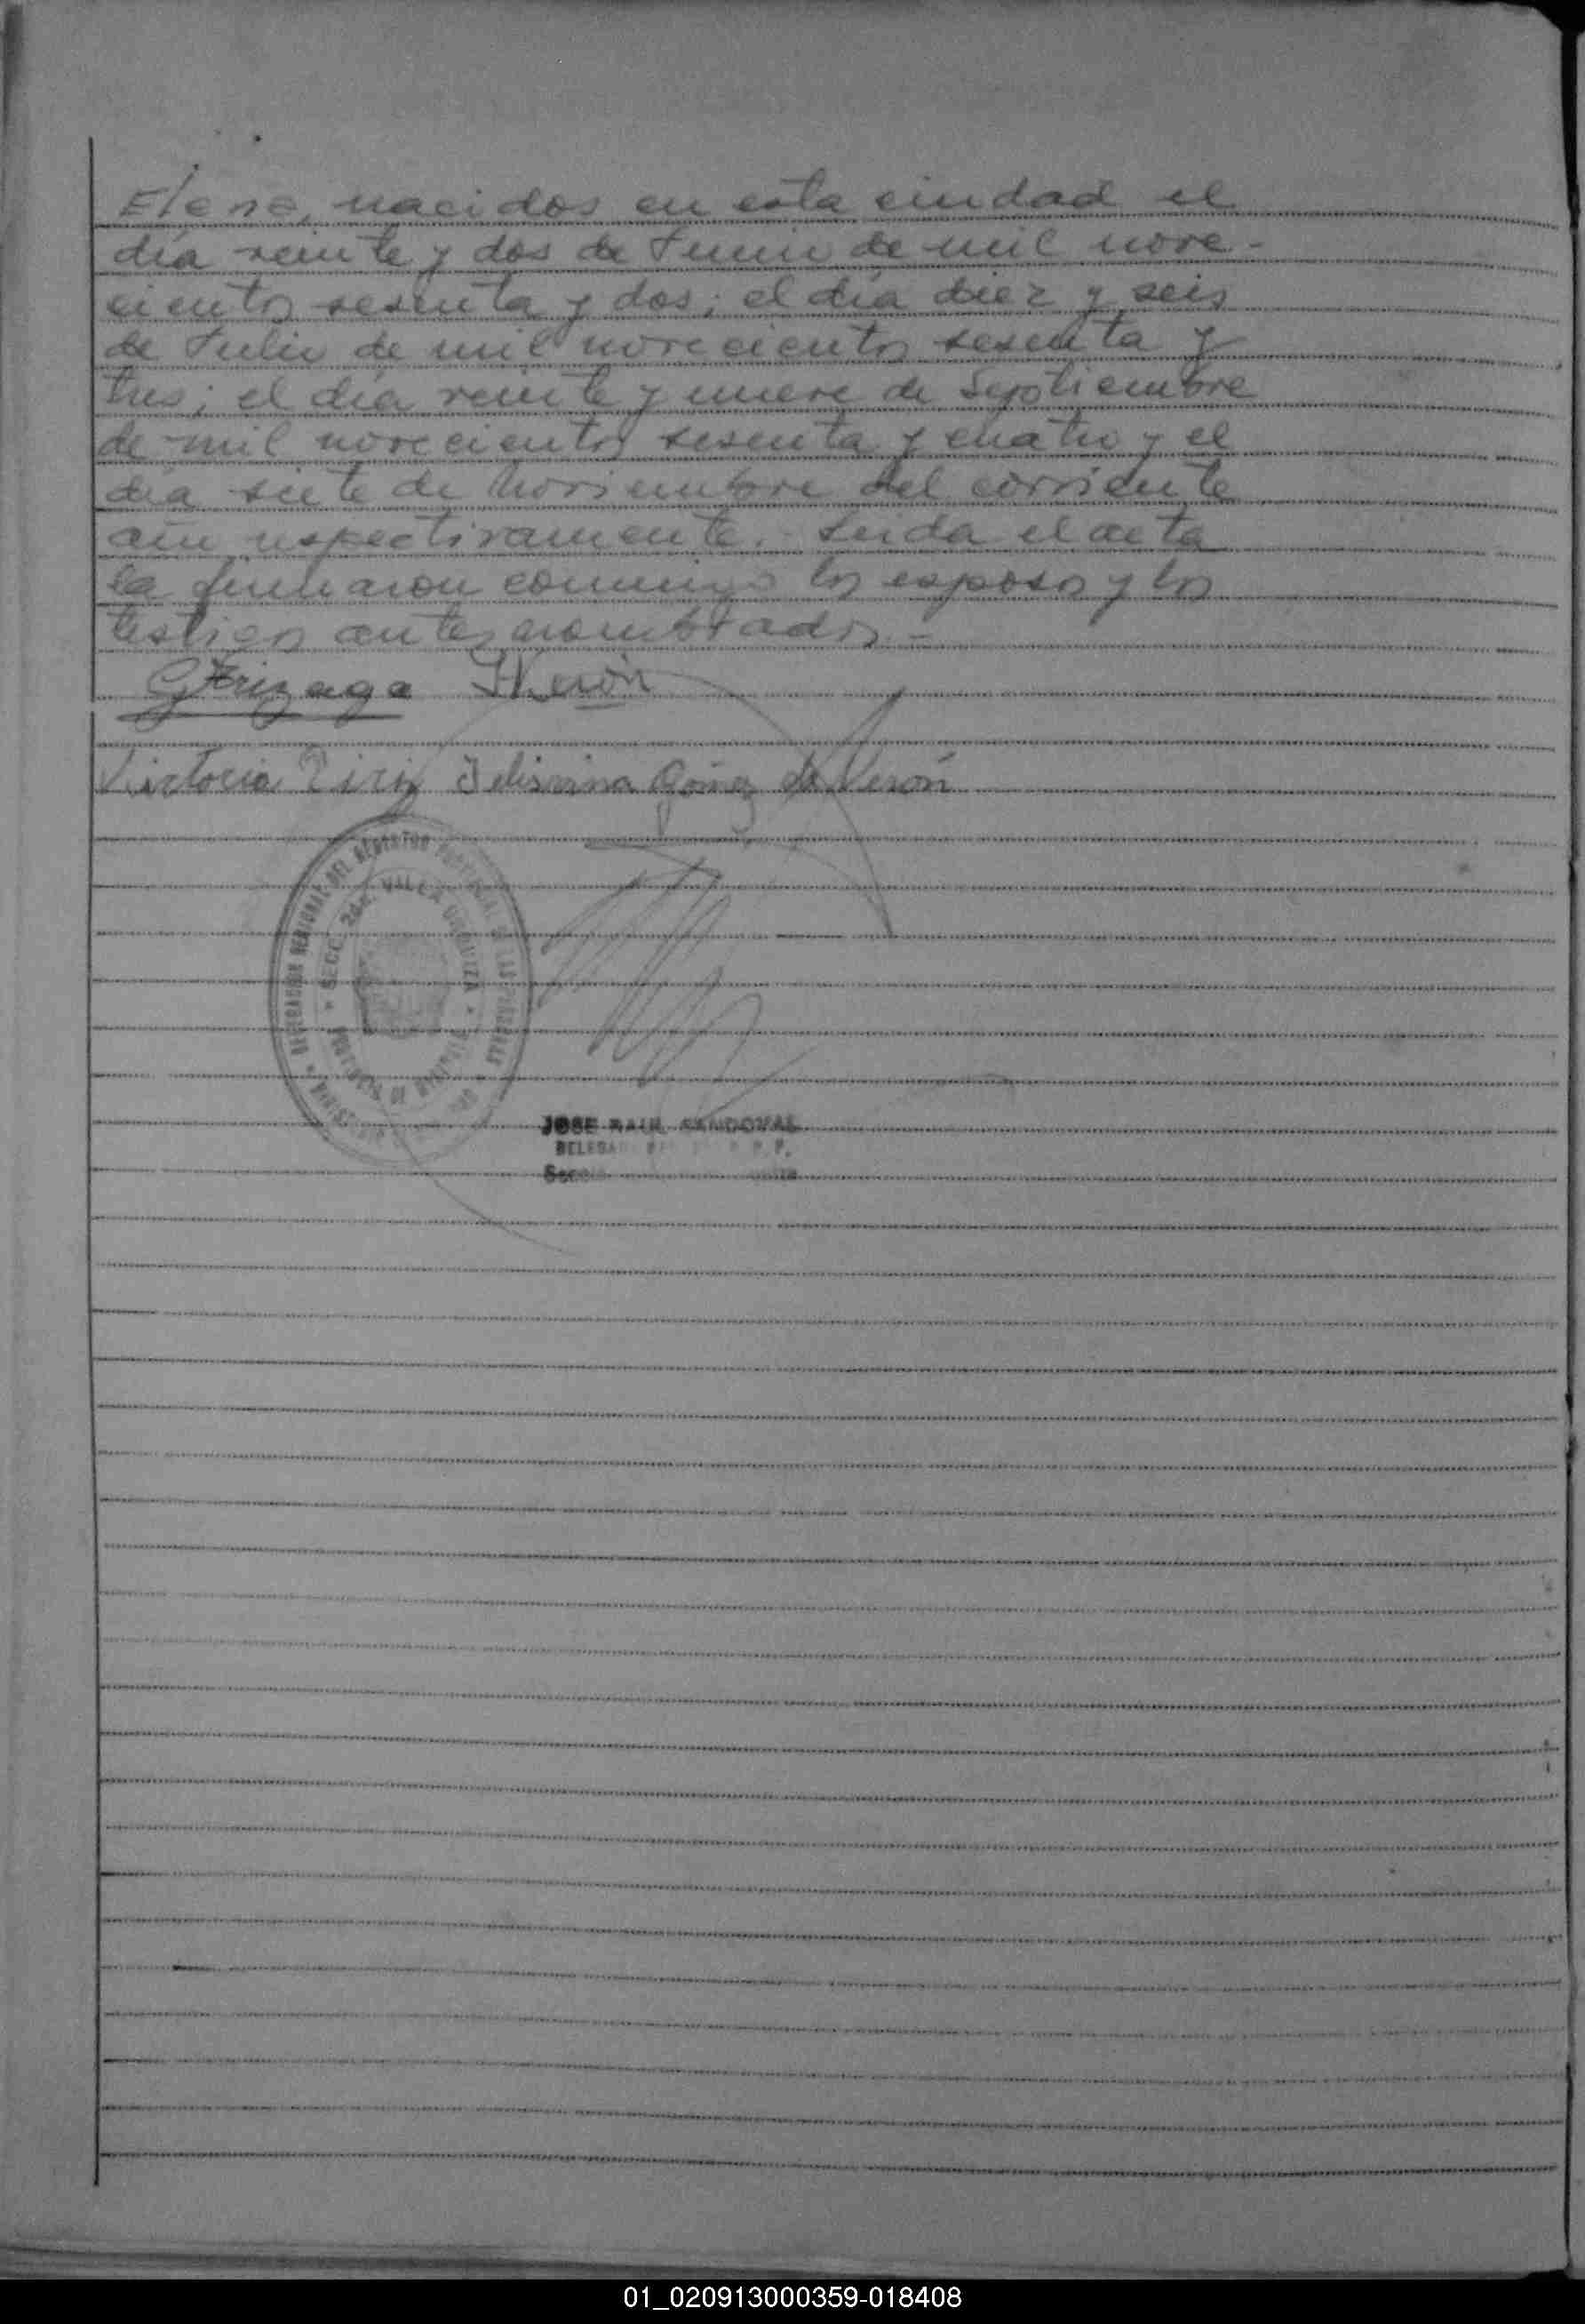 Elena, nacidos en esta ciudad el
día veinte y dos de Junio de mil nove-
cientos sesenta y dos; el día diez y seis
de Julio de mil novecientos sesenta y
tres; el día veinte y nueve de Septiembre
de mil novecientos sesenta y cuatro y el
día siete de Noviembre del corriente
año respectivamente. Leida el acta
la firmaron conmigo los esposos y los
testigos antes nombrados.-
Verón
Victoria Felismina Gómez de Verón
DELEGACION REGIONAL DEL REGISTRO PROVINCIAL DE LAS PERSONAS
SECC. 2da. VILLA URQUIZA
JOSE RAUL SANDOVAL
01_020913000359-018408